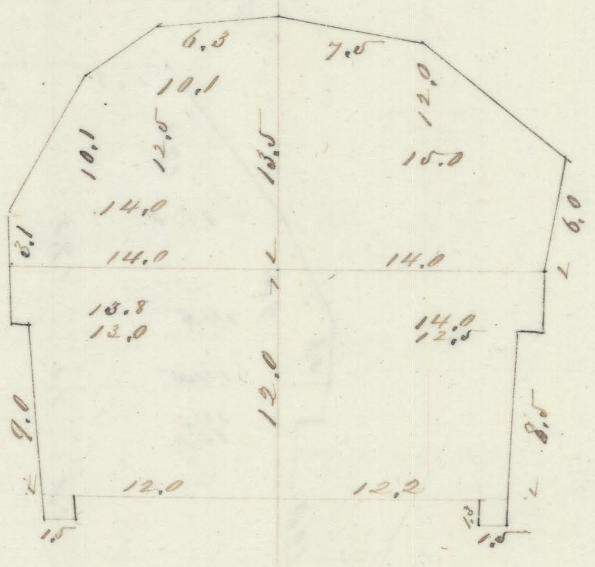 6.3 7.5
10.1 12.0
10.1 12.5 13.5 15.0
14.0
3.1 6.0
14.0 14.0
13.8 14.0
13.0 12.5
9.0 12.0 8.5
12.0 12.2
1.3
1.5 1.5